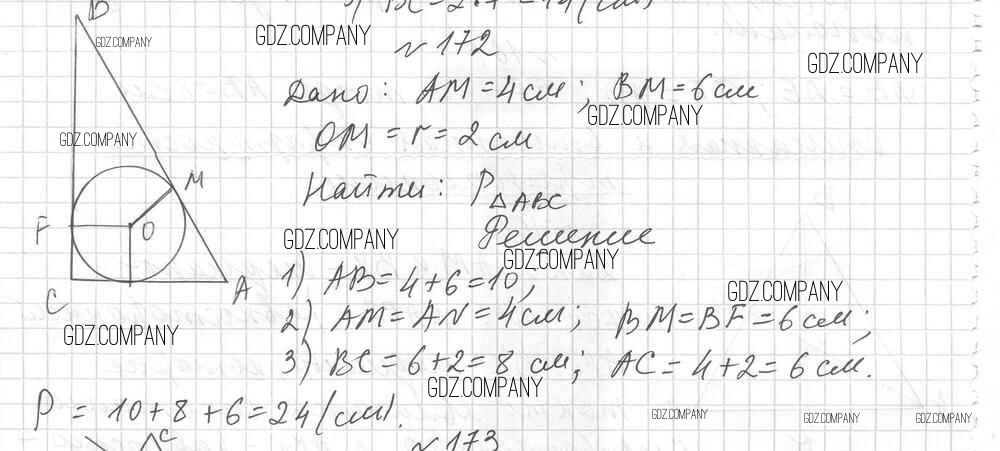 3) BC=2·7=14(см)
B
GDZ.COMPANY
GDZ.COMPANY
№172
GDZ.COMPANY
Дано: AM=4см; BM=6см
GDZ.COMPANY
GDZ.COMPANY
OM=r=2см
M
Найти: P△ABC
F
O
GDZ.COMPANY
Решение
GDZ.COMPANY
1) AB=4+6=10;
C
A
GDZ.COMPANY
2) AM=AN=4см; BM=BF=6см;
GDZ.COMPANY
3) BC=6+2=8 см; AC=4+2=6см.
GDZ.COMPANY
P=10+8+6=24(см).
GDZ.COMPANY
GDZ.COMPANY
GDZ.COMPANY
C
№173